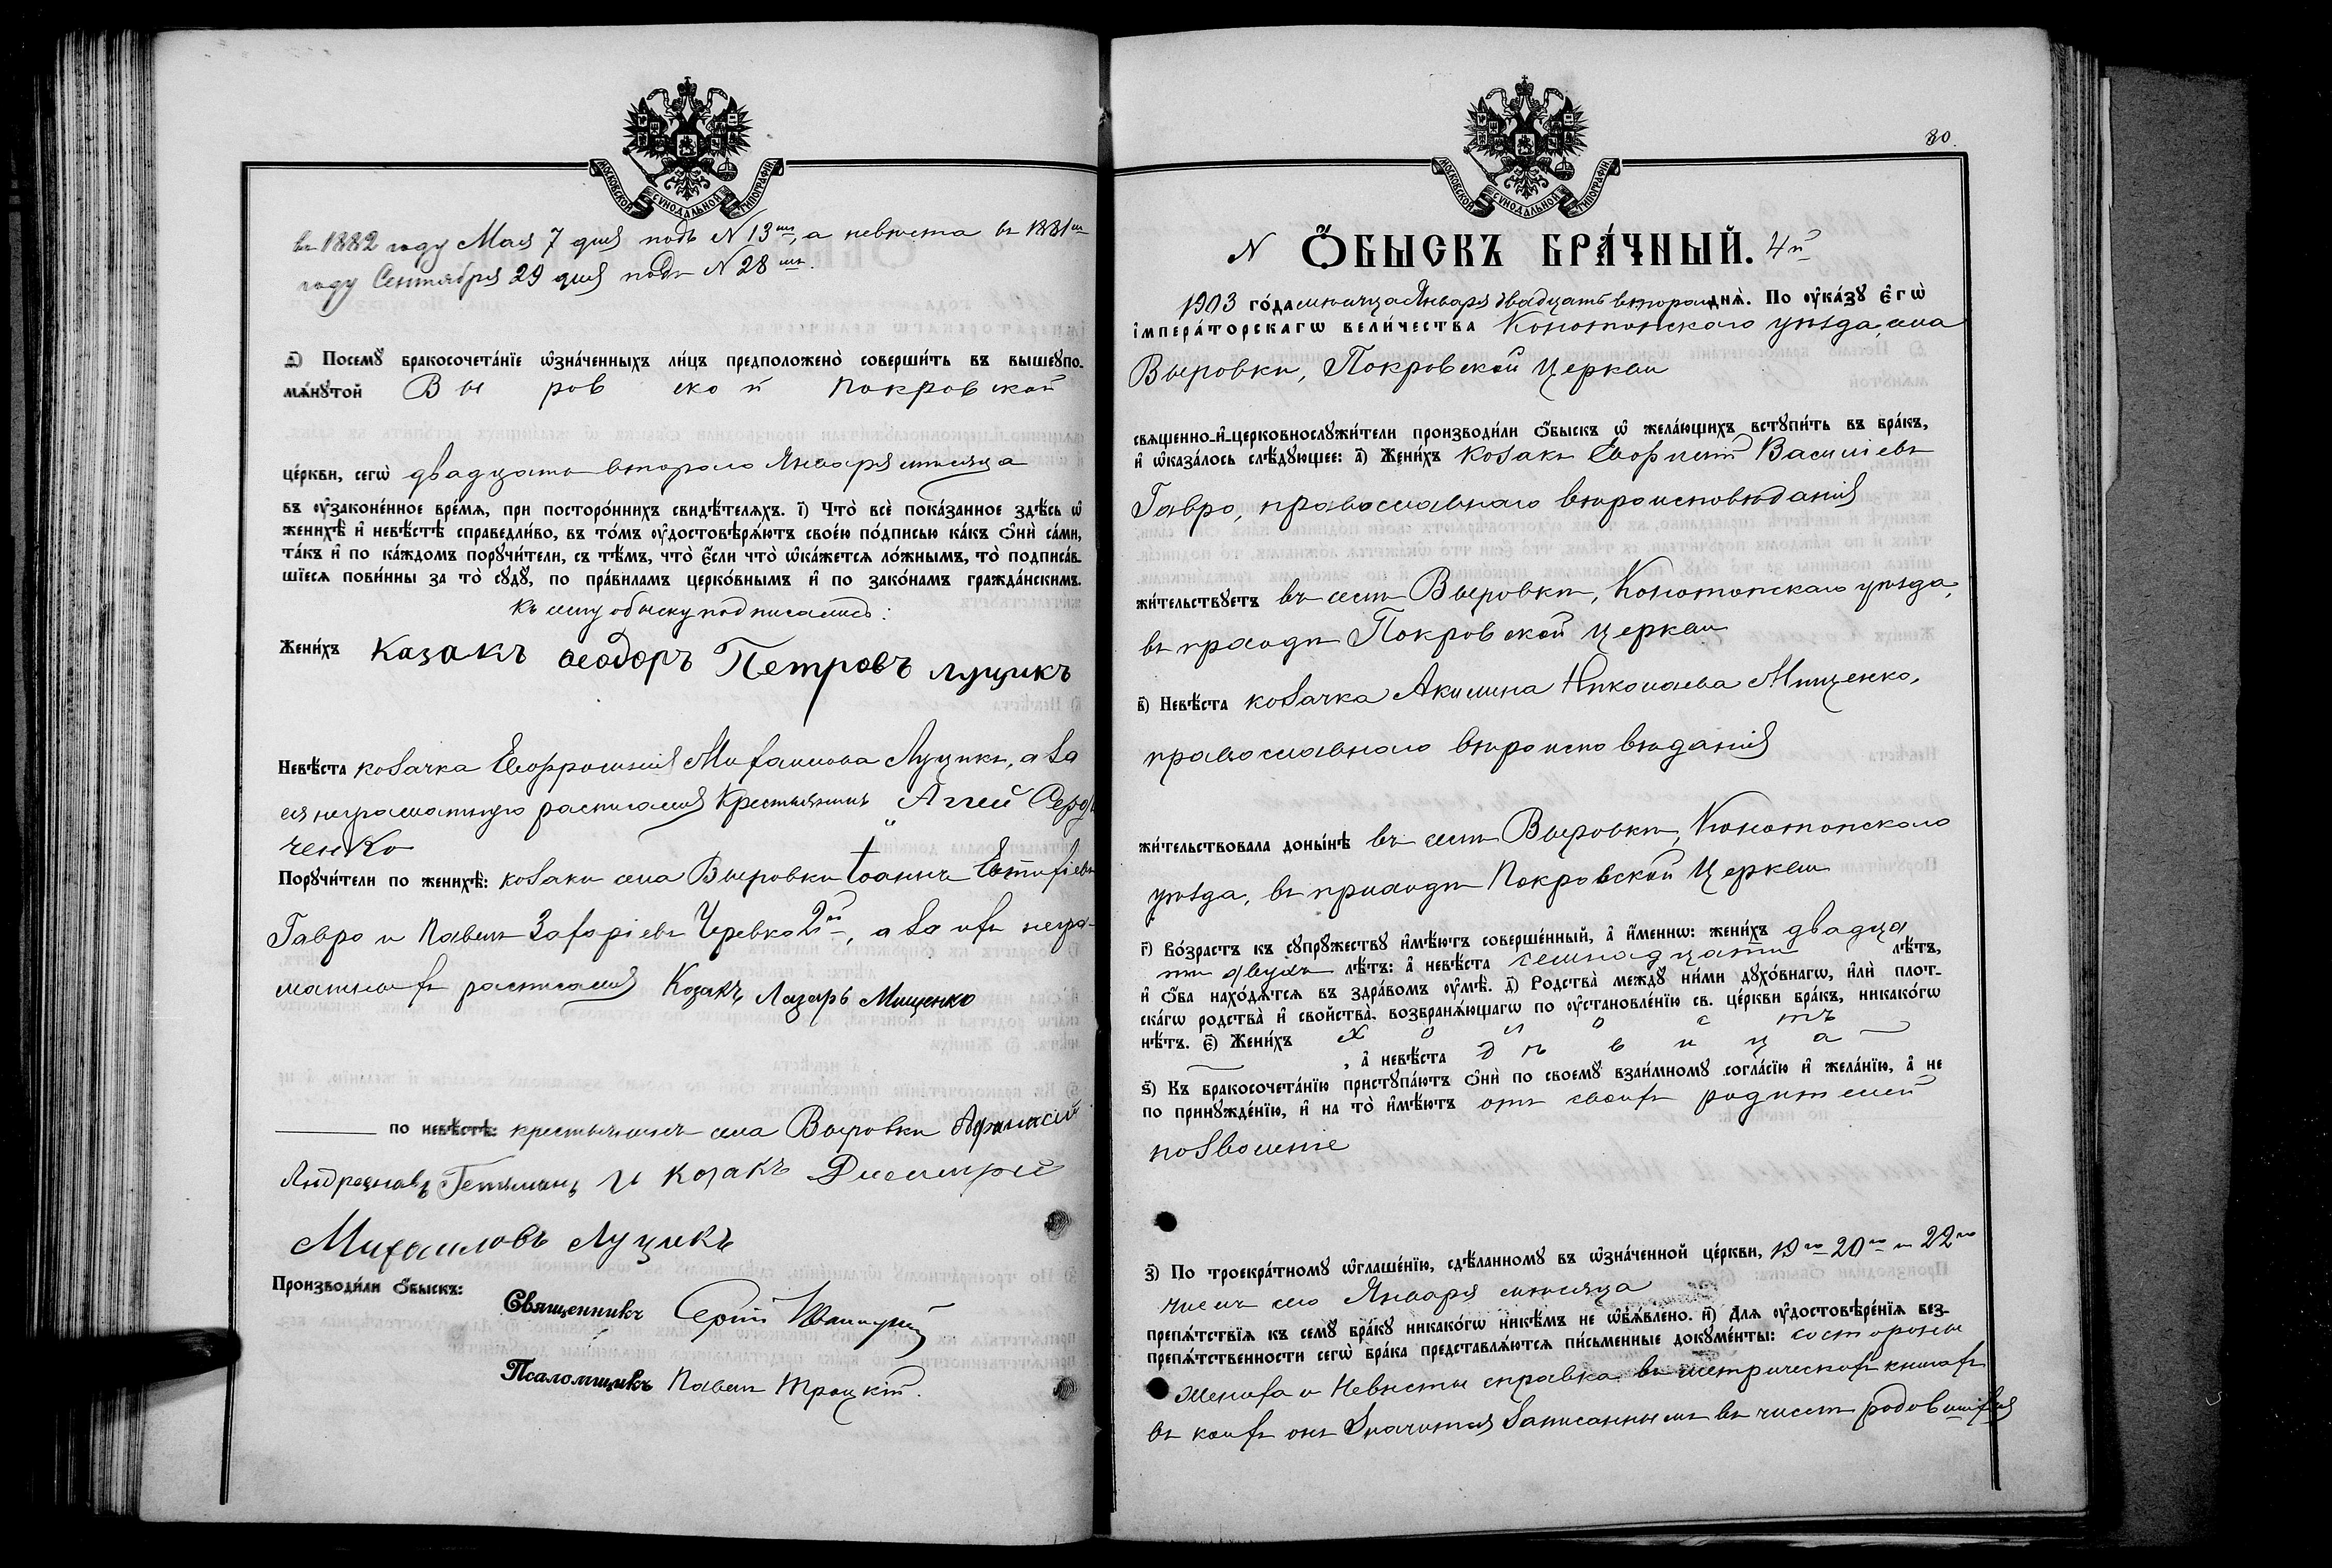 МОСКОВСКОЙ СѴНОДАЛЬНОЙ ТИПОГРАФІИ
въ 1882 году Мая 7 дня подъ N 13мъ, а невѣста въ 1881м
году Сентября 29 дня подъ N 28мъ.
д҃) Посемꙋ̀ бракосочета́нїе ѡ҆зна́ченныхъ ли́цъ предположено̀ соверши́ть въ вышеꙋпо-
мѧ́нꙋтой Выровской Покровской
це́ркви, сегѡ̀ двадцать второго Января мѣсяца
въ ᲂу҆законе́нное вре́мѧ, при посторо́ннихъ свидѣ́телѧхъ. і҃) Что̀ всѐ пока́занное здѣ́сь ѡ҆
женихѣ̀ и҆ невѣ́стѣ справедли́во, въ то́мъ ᲂу҆достовѣрѧ́ютъ свое́ю по́дписью ка́къ ѻ҆нѝ са́ми,
та́къ и҆ по ка́ждомъ порꙋчи́тели, съ тѣ́мъ, что̀ є҆́сли что̀ ѡ҆ка́жется ло́жнымъ, то̀ подписа́в-
шїесѧ пови́нны за то̀ сꙋдꙋ̀, по пра́виламъ церко́внымъ и҆ по зако́намъ гражда́нскимъ.
Къ сему обыску подписались:
Жени́хъ Казакъ Ѳеодоръ Петровъ Луцикъ
Невѣ́ста козачка Евфросинія Михаилова Луцикъ, а за
ея неграмотную росписался Крестьянинъ Аггей
ченко
Порꙋчи́тели по женихѣ̀: козаки села Выровки Іоаннъ Евтихіевъ
Гавро и Павелъ Захаріевъ Черевко 2й, а за ихъ негра-
мотныхъ росписался Козакъ Лазарь Мищенко
по невѣ́стѣ: крестьянинъ села Выровки Афанасій
Андреевнавъ Гетманъ И козакъ Димитрій
Михаиловъ Луцикъ
Производи́ли ѻ҆́быскъ:
Священникъ Сергій
Псаломщикъ Павелъ Троцкій.
80.
МОСКОВСКОЙ СѴНОДАЛЬНОЙ ТИПОГРАФІИ
N Ѻ҆́БЫСКЪ БРА́ЧНЫЙ. 4й
1903 го́да мѣсяца Января двадцать второго днѧ̀. По ᲂу҆ка́зꙋ є҆гѡ̀
і҆мпера́торскагѡ вели́чества Конотопскаго уѣзда, села
Выровки, Покровской Церкви
свѧщенно-и҆-церковнослꙋжи́тели производи́ли ѻ҆́быскъ ѡ҆ жела́ющихъ встꙋпи́ть въ бра́къ,
и҆ ѡ҆каза́лось слѣ́дꙋющее: а҃) Жени́хъ козакъ Евфимій Васильевъ
Гавро, православнаго вѣроисповѣданія
жи́тельствꙋетъ въ селѣ Выровкѣ, Конотопскаго уѣзда,
въ приходѣ Покровской Церкви
в҃) Невѣ́ста козачка Акилина Николаева Мищенко,
православнаго вѣроисповѣданія
жи́тельствовала доны́нѣ въ селѣ Выровкѣ, Конотопскаго
уѣзда, въ приходѣ Покровской Церкви
г҃) Во́зрастъ къ сꙋпрꙋ́жествꙋ и҆мѣ́ютъ соверше́нный, а҆ и҆́меннѡ: жени́хъ двадца
ти двухъ лѣ́тъ: а҆ невѣ́ста семнадцати лѣ́тъ,
и҆ ѻ҆́ба нахо́дѧтсѧ въ здра́вомъ ᲂу҆мѣ̀. д҃) Родства̀ междꙋ ни́ми дꙋхо́внагѡ, и҆лѝ плот-
ска́гѡ родства̀ и҆ свойства̀, возбранѧ́ющагѡ по ᲂу҆становле́нїю св. це́ркви бра́къ, никако́гѡ
нѣ́тъ. є҃) Жени́хъ холостъ
, а҆ невѣ́ста дѣвица
ѕ҃) Къ бракосочета́нїю пристꙋпа́ютъ ѻ҆нѝ по своемꙋ̀ взаи́мномꙋ согла́сїю и҆ жела́нїю, а҆ не
по принꙋжде́нїю, и҆ на то̀ и҆мѣ́ютъ отъ своихъ родителей
позволеніе
з҃) По троекра́тномꙋ ѡ҆глаше́нїю, сдѣ́ланномꙋ въ ѡ҆зна́ченной це́ркви, 19го 20го и 22го
числъ сего Января мѣсяца
препѧ́тствїѧ къ семꙋ̀ бра́кꙋ никако́гѡ нике́мъ не ѡ҆б̾ѧ́влено. и҃) Длѧ̀ ᲂу҆достовѣре́нїѧ без-
препѧ́тственности сегѡ̀ бра́ка представлѧ́ютсѧ пи́сьменные докꙋме́нты: со стороны
жениха и Невѣсты справка въ метрическихъ книгахъ
въ коихъ онъ значится записаннымъ въ числѣ родовшихся